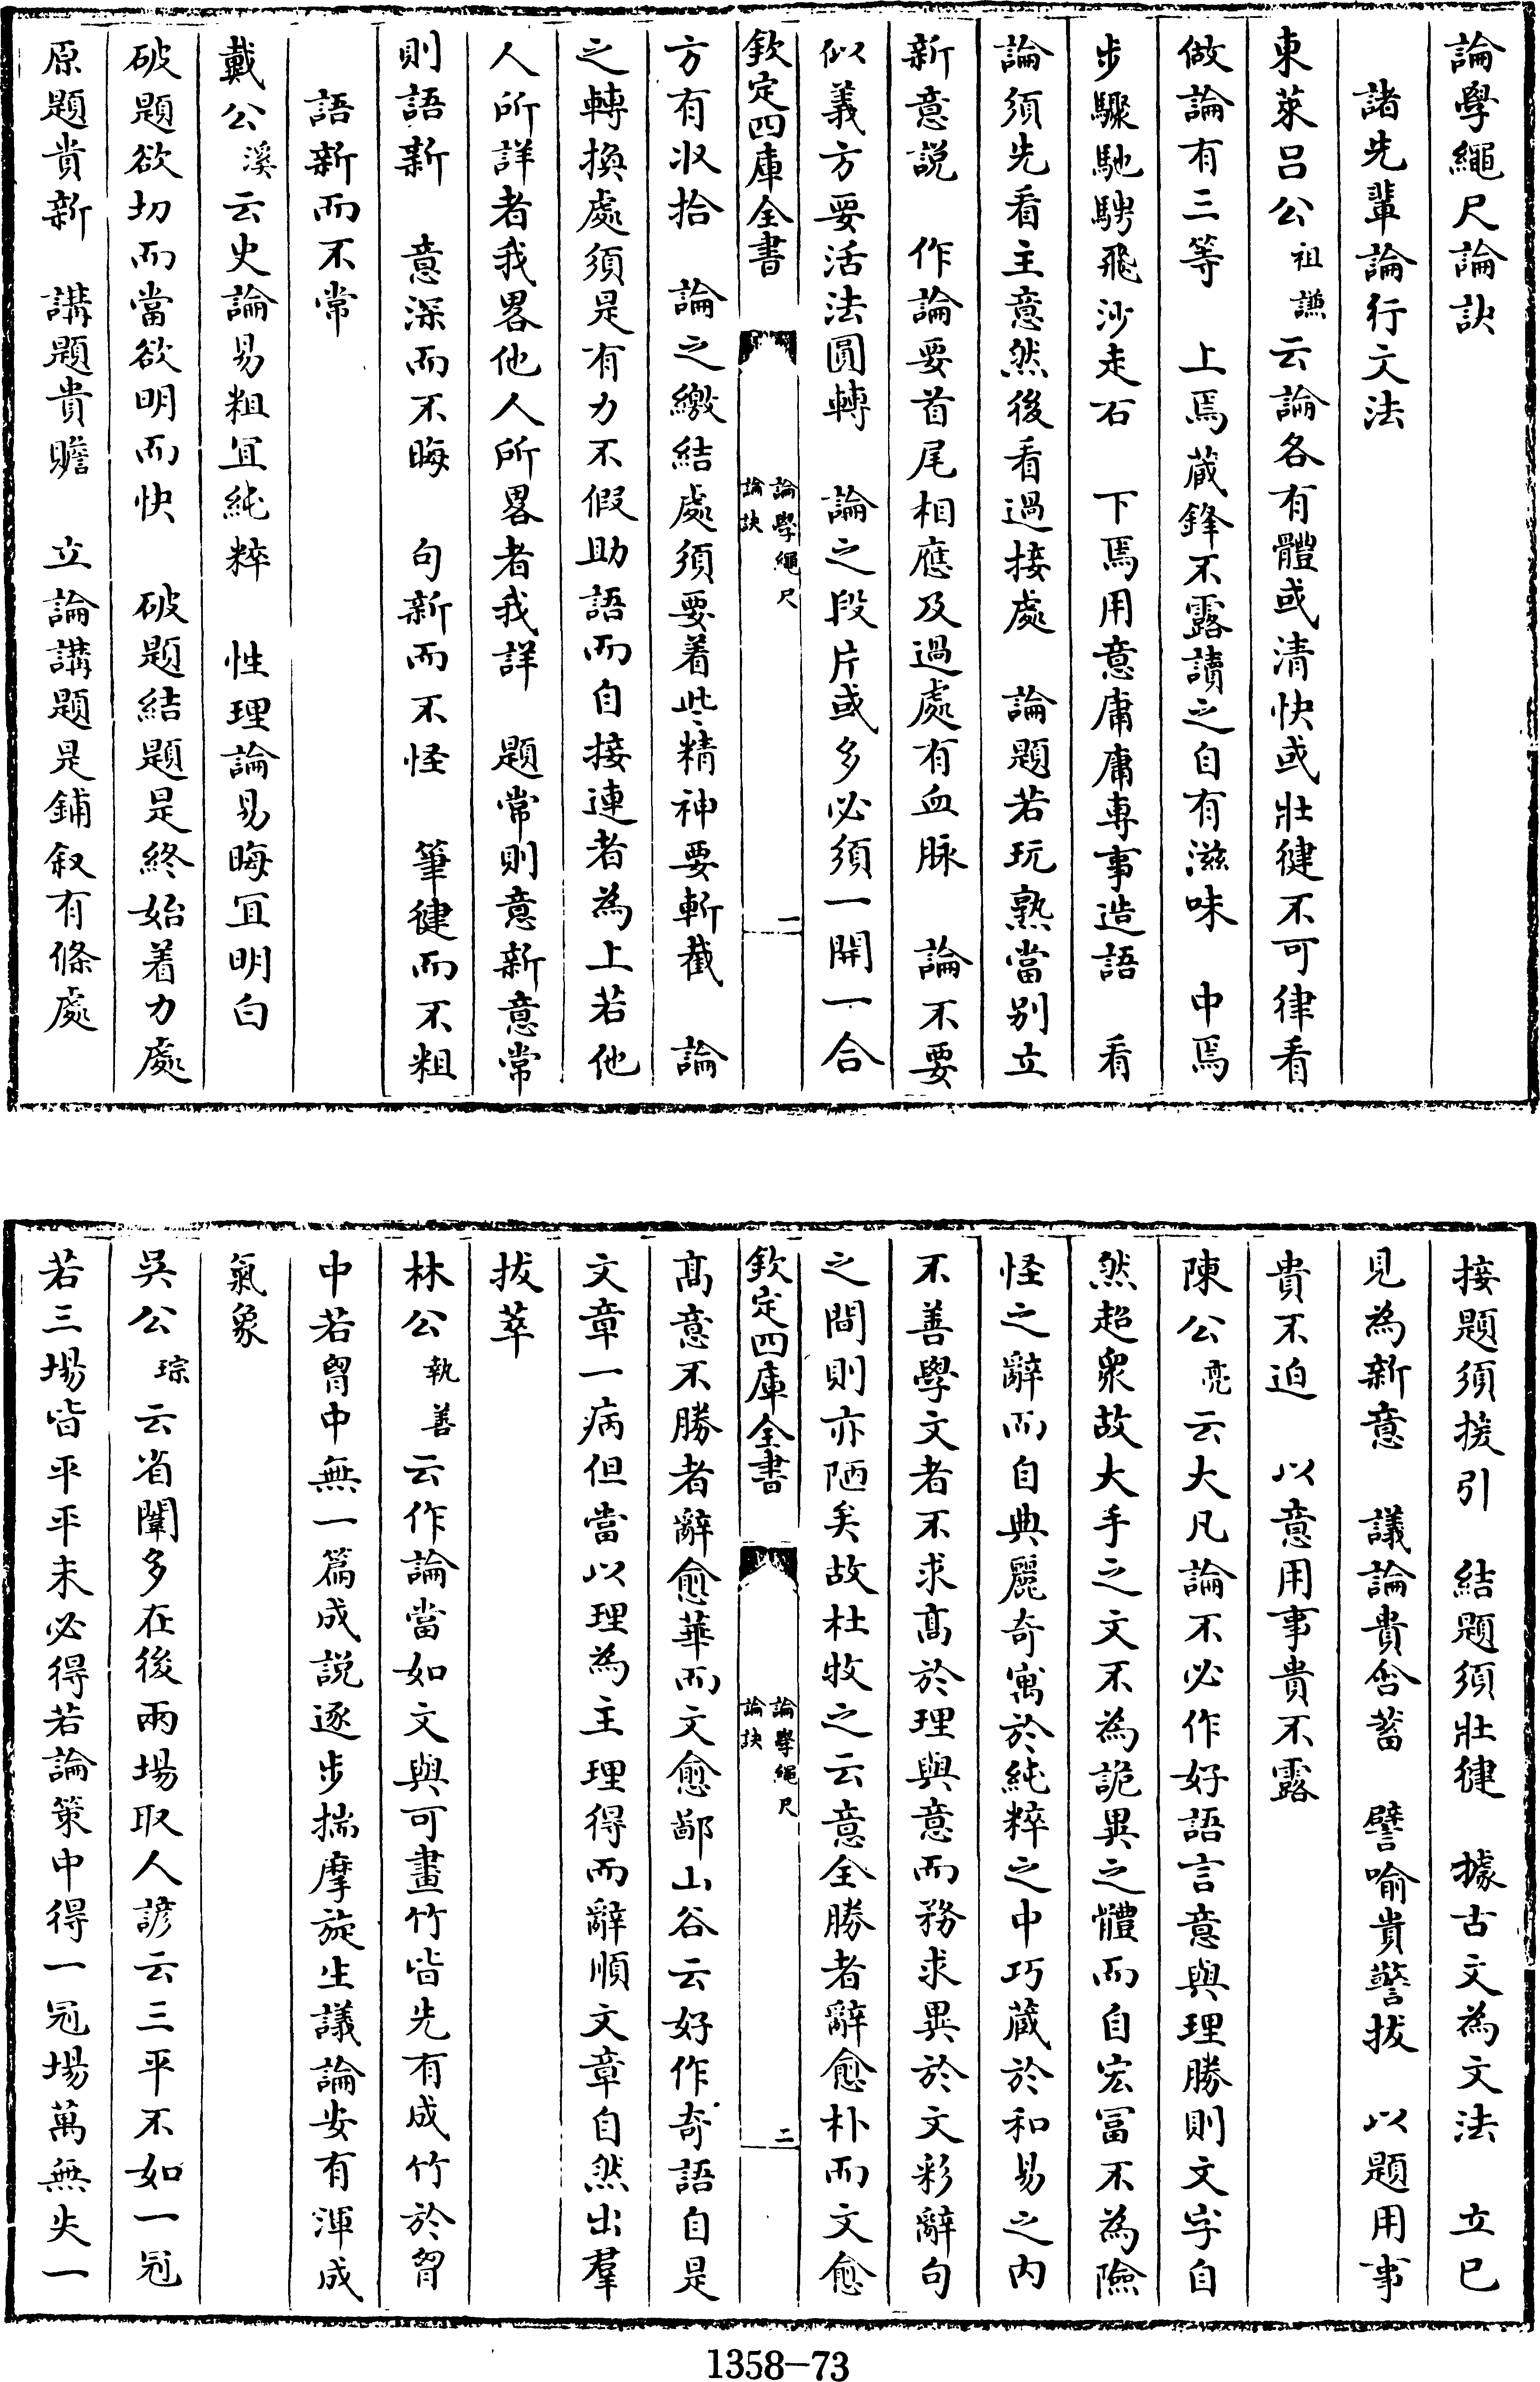 論學繩尺論訣
諸先輩論行文法
東萊呂公祖謙云論各有體或清快或壯健不可律看
做論有三等　上焉藏鋒不露讀之自有滋味　中焉
步驟馳騁飛沙走石　下焉用意庸庸專事造語　看
論須先看主意然後看過接處　論題若玩熟當别立
新意說　作論要首尾相應及過處有血脉　論不要
似義方要活法圓轉　論之段片或多必須一開一合
欽定四庫全書　論學繩尺論訣　一
方有收拾　論之繳結處須要着些精神要斬截　論
之轉換處須是有力不假助語而自接連者為上若他
人所詳者我畧他人所畧者我詳　題常則意新意常
則語新　意深而不晦　句新而不怪　筆健而不粗
語新而不常
戴公溪云史論易粗宜純粹　性理論易晦宜明白
破題欲切而當欲明而快　破題結題是終始着力處
原題貴新　講題貴贍　立論講題是鋪叙有條處
接題須援引　結題須壯健　據古文為文法　立已
見為新意　議論貴含蓄　譬喻貴警拔　以題用事
貴不迫　以意用事貴不露
陳公亮云大凡論不必作好語言意與理勝則文字自
然超衆故大手之文不為詭異之體而自宏冨不為險
怪之辭而自典麗奇寓於純粹之中巧藏於和易之内
不善學文者不求髙於理與意而務求異於文彩辭句
之間則亦陋矣故杜牧之云意全勝者辭愈朴而文愈
欽定四庫全書　論學繩尺論訣　二
髙意不勝者辭愈華而文愈鄙山谷云好作奇語自是
文章一病但當以理為主理得而辭順文章自然出羣
拔萃
林公執善云作論當如文與可畫竹皆先有成竹於胷
中若胷中無一篇成說逐步揣摩旋生議論安有渾成
氣象
吳公琮云省闈多在後兩場取人諺云三平不如一冠
若三場皆平平未必得若論策中得一冠場萬無失一
1358-73